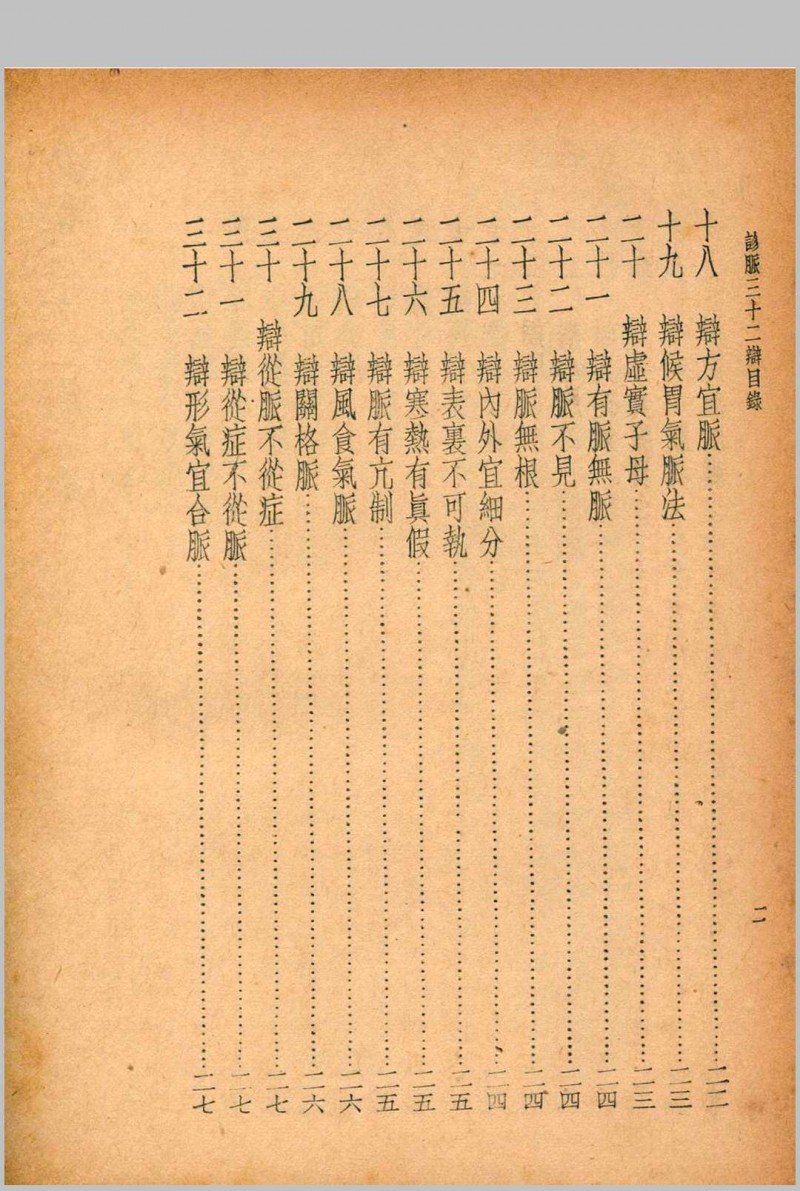 診脈三十二辯目錄
二
十八　辯方宜脈……二二
十九　辯候胃氣脈法……二三
二十　辯虛實子母……二三
二十一　辯有脈無脈……二四
二十二　辯脈不見……二四
二十三　辯脈無根……二四
二十四　辯內外宜細分……二四
二十五　辯表裏不可執……二五
二十六　辯寒熱有眞假……二五
二十七　辯脈有亢制……二五
二十八　辯風食氣脈……二六
二十九　辯關格脈……二六
三十　辯從脈不從症……二七
三十一　辯從症不從脈……二七
三十二　辯形氣宜合脈……二七